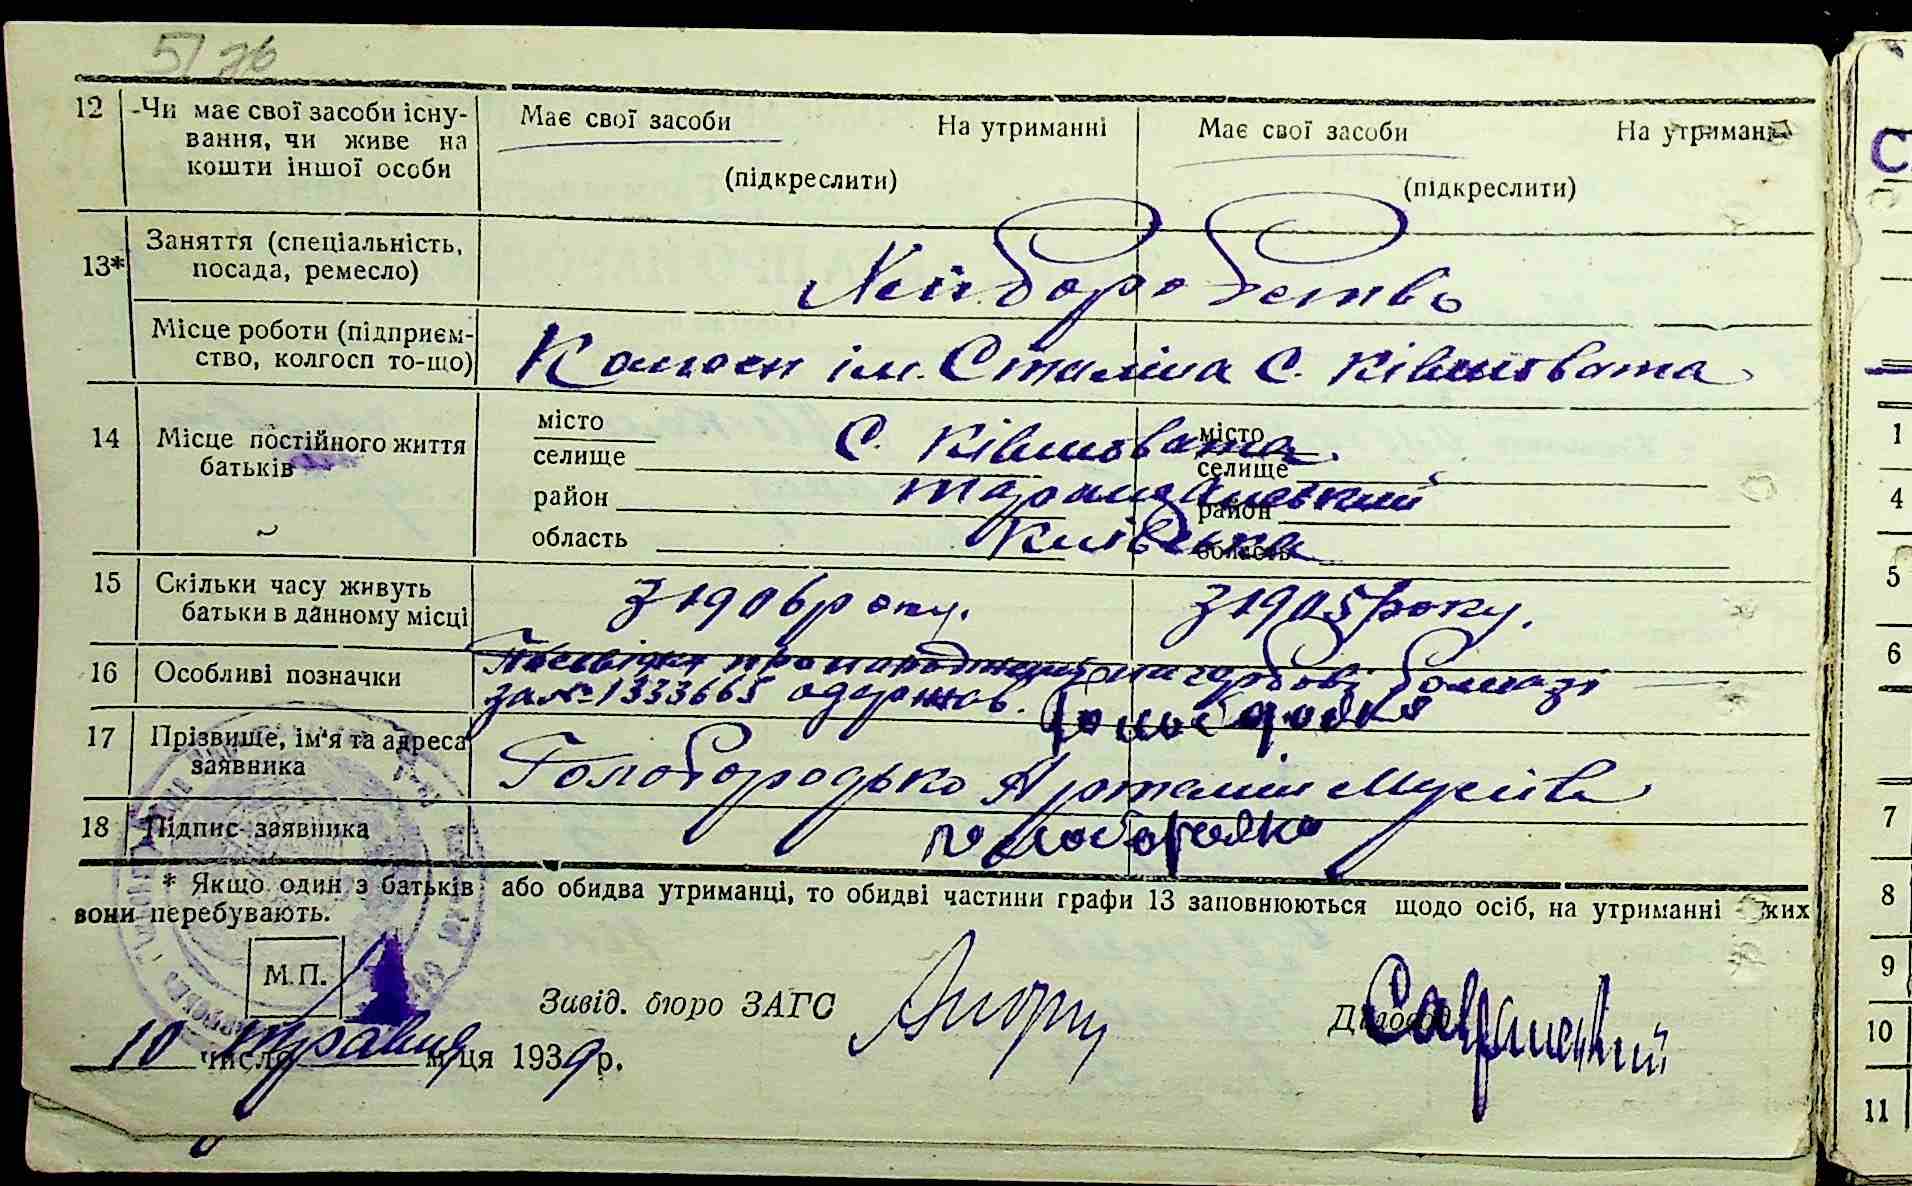 5/76
12 Чи має свої засоби існу-
вання, чи живе на
кошти іншої особи
Має свої засоби На утриманні Має свої засоби На утриманні
(підкреслити) (підкреслити)
13* Заняття (спеціальність,
посада, ремесло)
Хліборобство
Місце роботи (підприєм-
ство, колгосп то-що)
Колгосп ім. Сталіна с. Ківшовата
14 Місце постійного життя
батьків
місто місто
селище с. Ківшовата селище
район Таращанський район
область Київська область
15 Скільки часу живуть
батьки в данному місці
З 1906 року. З 1905 року.
16 Особливі позначки
Посвідку про народження на гербові бомазі
за № 1333665 одержав. Голобородко
17 Прізвище, ім'я та адреса
заявника
Голобородько Мусієв
18 Підпис заявника
Голобородко
* Якщо один з батьків або обидва утриманці, то обидві частини графи 13 заповнюються щодо осіб, на утриманні яких
вони перебувають.
М.П.
Завід. бюро ЗАГС
Діловод
10 числа травня м-ця 1939 р.
С
1
4
5
6
7
8
9
10
11